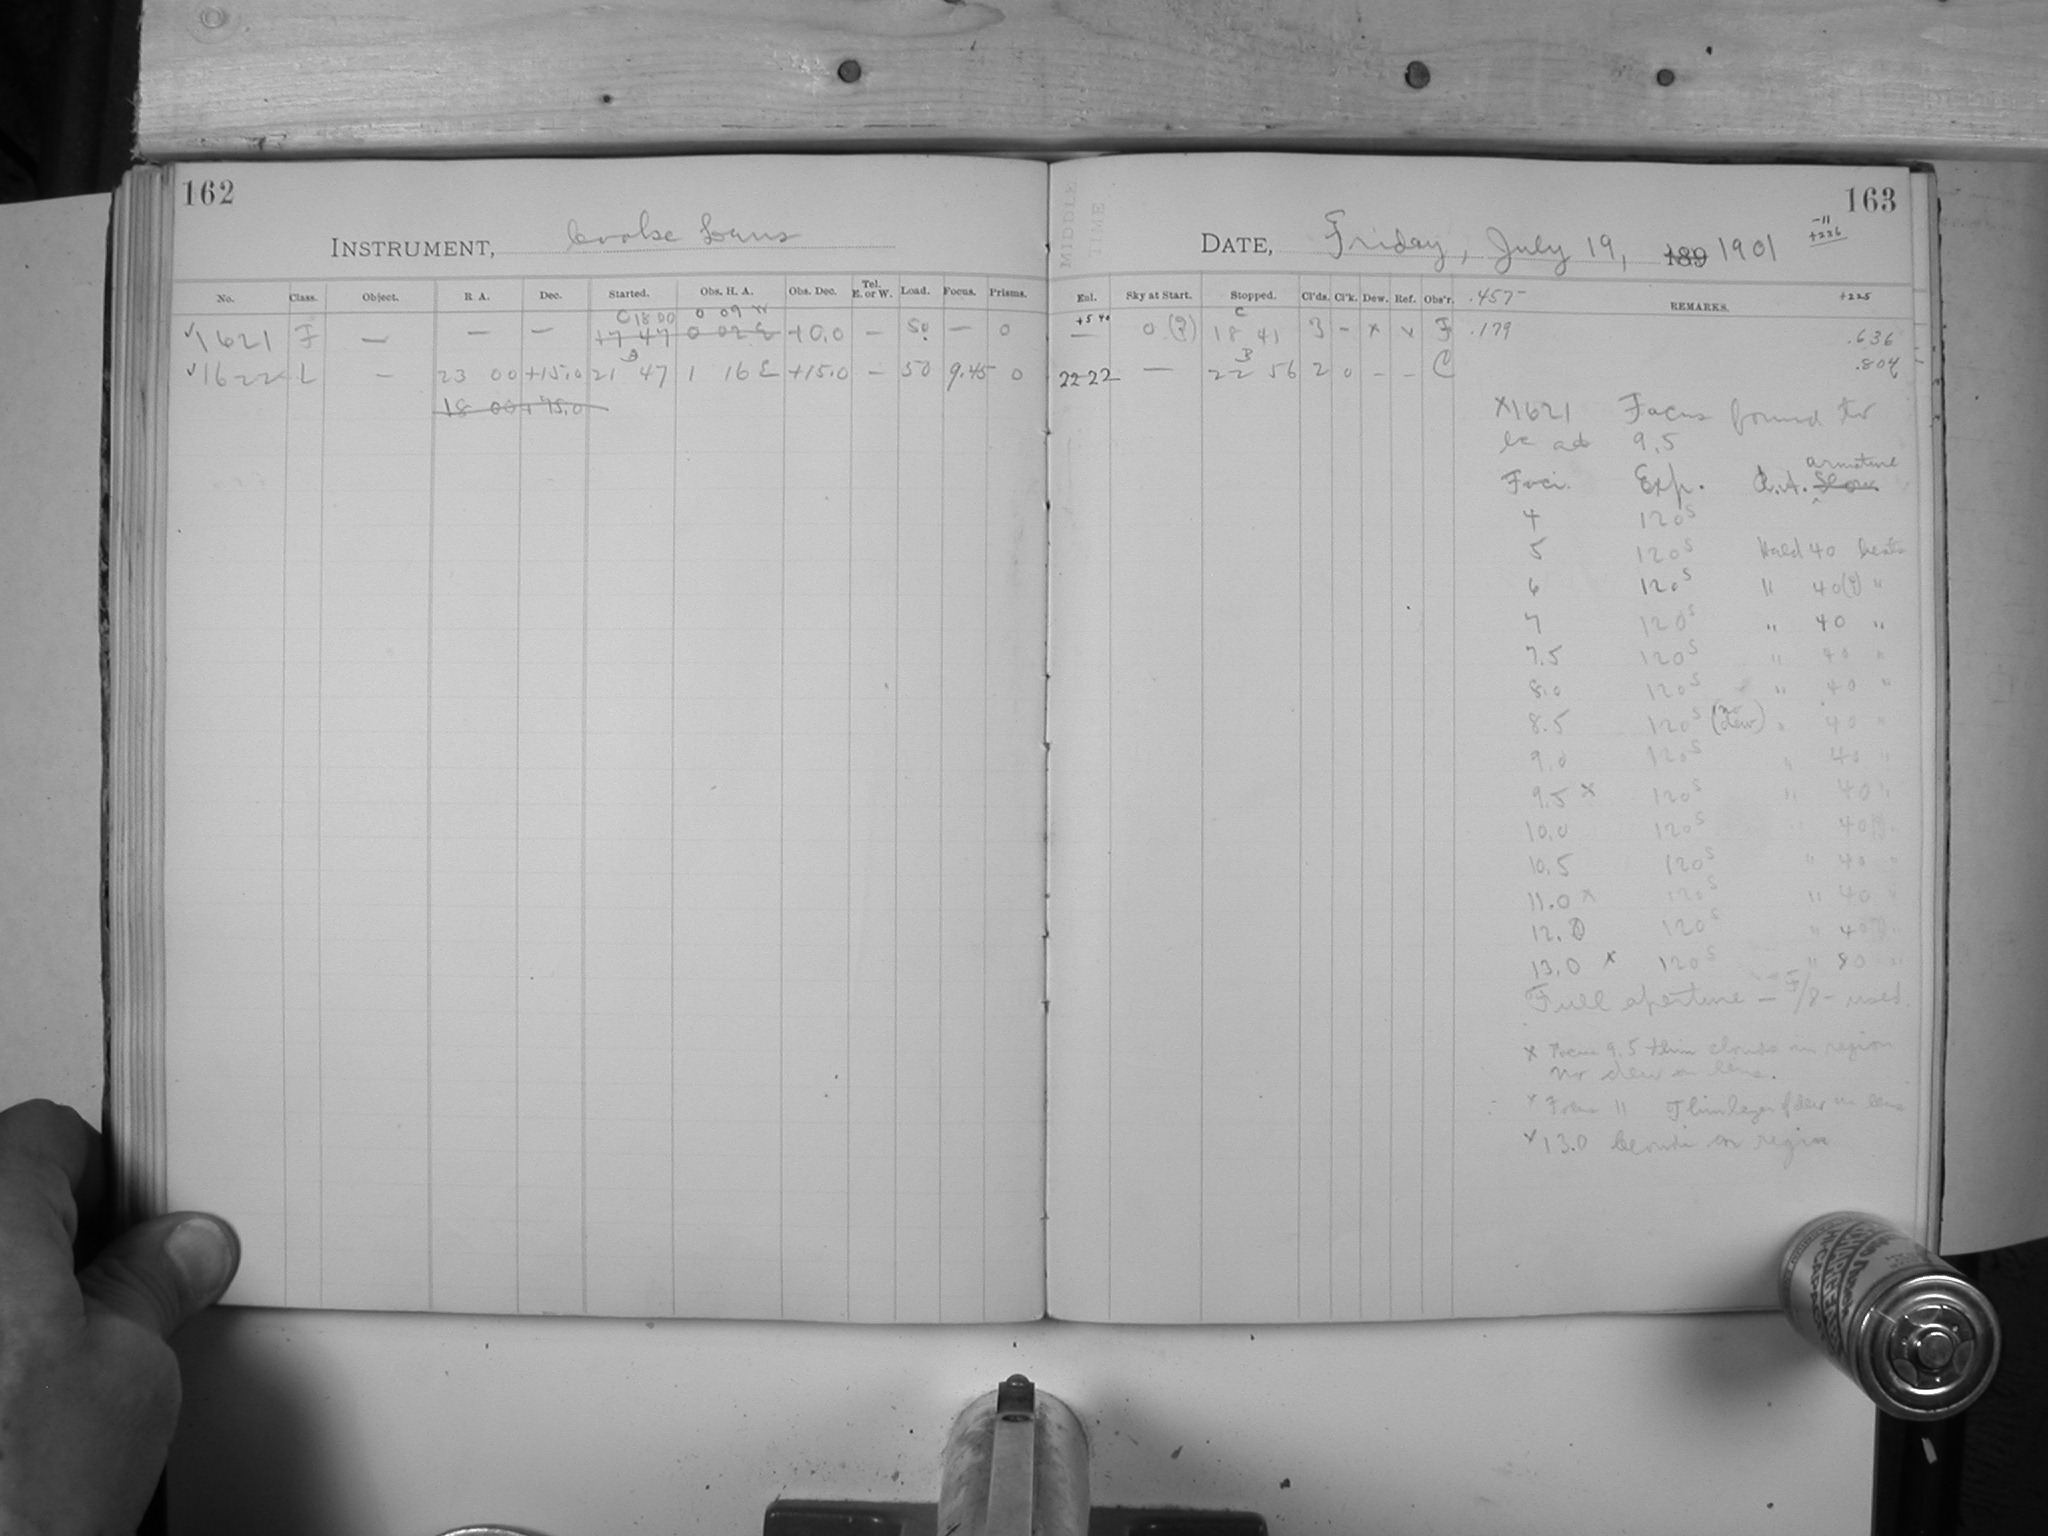 162
INSTRUMENT, Cooke Lens
No. Class. Object. R. A. Dec. Started. Obs. H. A. Obs. Dec. Tel. E. or W. Load. Focus. Prisms.
C 18 00 0 09 W
✓1621 F — — — 17 47 0 02 E +0.0 — 50 — 0
✓1622 L — 23 00 +15.0 21 47 1 16 E +15.0 — 50 9.45 0
18 00 +75.0
MIDDLE TIME
163
-11
+236
DATE, Friday, July 19, 189 1901
Enl. Sky at Start. Stopped. Cl'ds. Cl'k. Dew. Ref. Obs'r. .457 REMARKS. +225
+5 40 C
— 0 (?) 18 41 3 - x v F .179 .636
B
22 22 — 22 56 2 0 - - C .804
x1621 Focus found to
be at 9.5
armature
Foci. Exp. R.A. Slow
4 120s
5 120s Held 40 beats
6 120s " 40(?) "
7 120s " 40 "
7.5 120s " 40 "
8.0 120s " 40 "
8.5 120s (no dew) " 40 "
9.0 120s " 40 "
9.5 x 120s " 40 "
10.0 120s " 40 "
10.5 120s " 40 "
11.0 x 120s " 40 "
12.0 120s " 40 "
13.0 x 120s " 80 "
Full aperture — F/8 - used.
x Focus 9.5 thin clouds in region
No dew on lens.
x Focus 11 Thin layer of dew on lens
x 13.0 Clouds in region